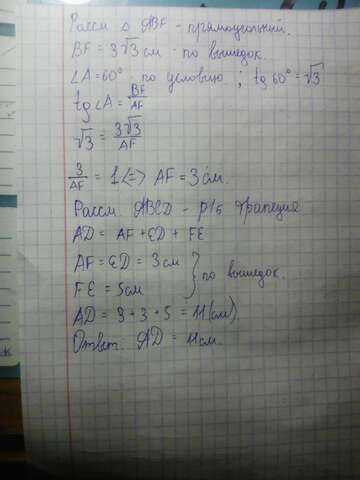 Рассм △ ABF - прямоугольный.
BF = 3√3 см - по вышедок.
∠A = 60° по условию ; tg 60° = √3
tg ∠A = BF/AF
√3 = 3√3/AF
3/AF = 1 <=> AF = 3 см.
Рассм ABCD - р/б трапеция
AD = AF + ED + FE
AF = ED = 3 см
FE = 5 см } по вышедок.
AD = 3 + 3 + 5 = 11 (см)
Ответ: AD = 11 см.